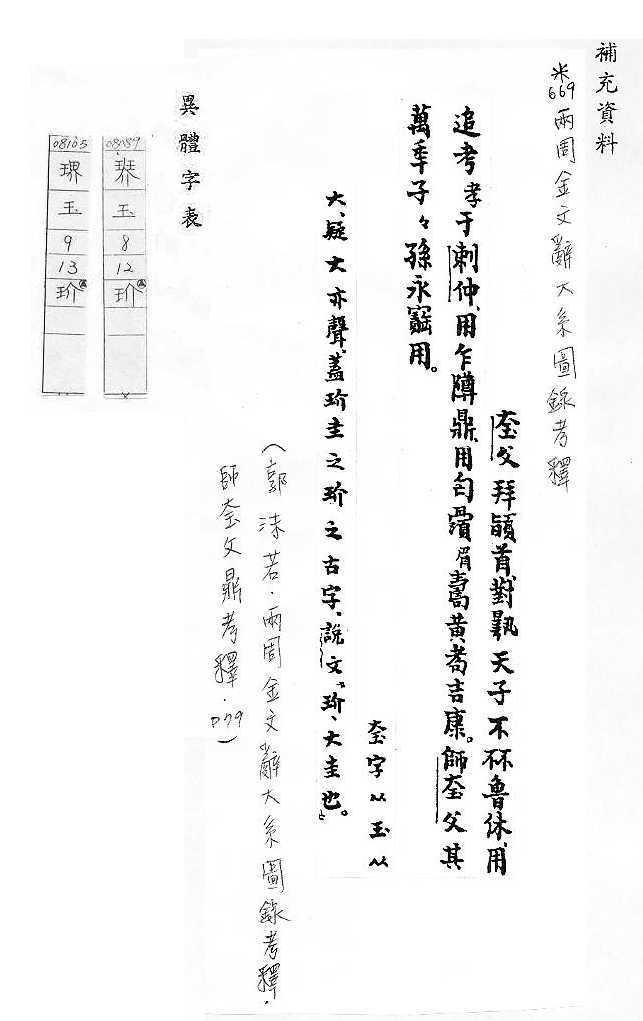 補充資料
※669 兩周金文辭大系圖錄考釋
父拜
首對
天子不㔻魯休用
追考孝于剌仲用乍䵼鼎用匄眉壽黃耇吉康。師
父其
萬年子々孫永寶用。
字从玉从
大、疑大亦聲、蓋玠圭之玠之古字、說文、玠、大圭也。
(郭沫若.兩周金文辭大系圖錄考釋.
師
父鼎考釋.P79)
異體字表
玉
8
12
玠
08105
玉
9
13
玠